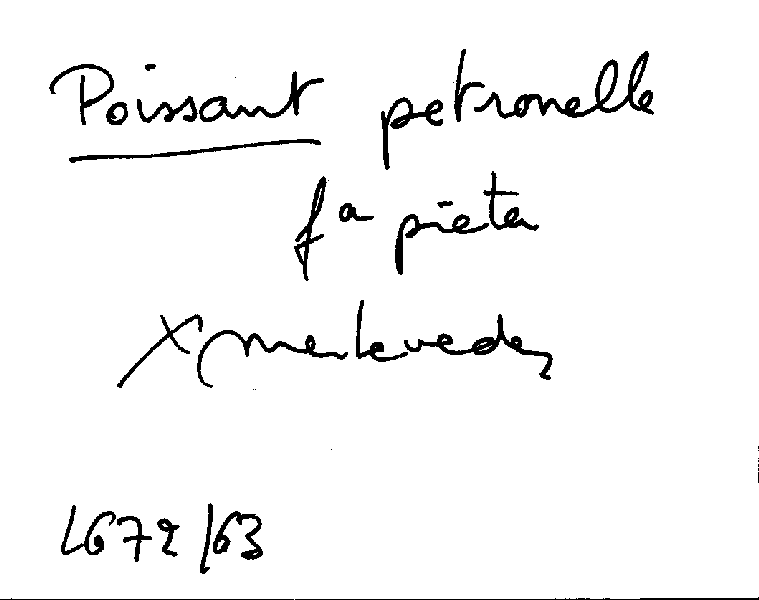 Poissant petronelle
fa pieter
X merlevede,
1672/63